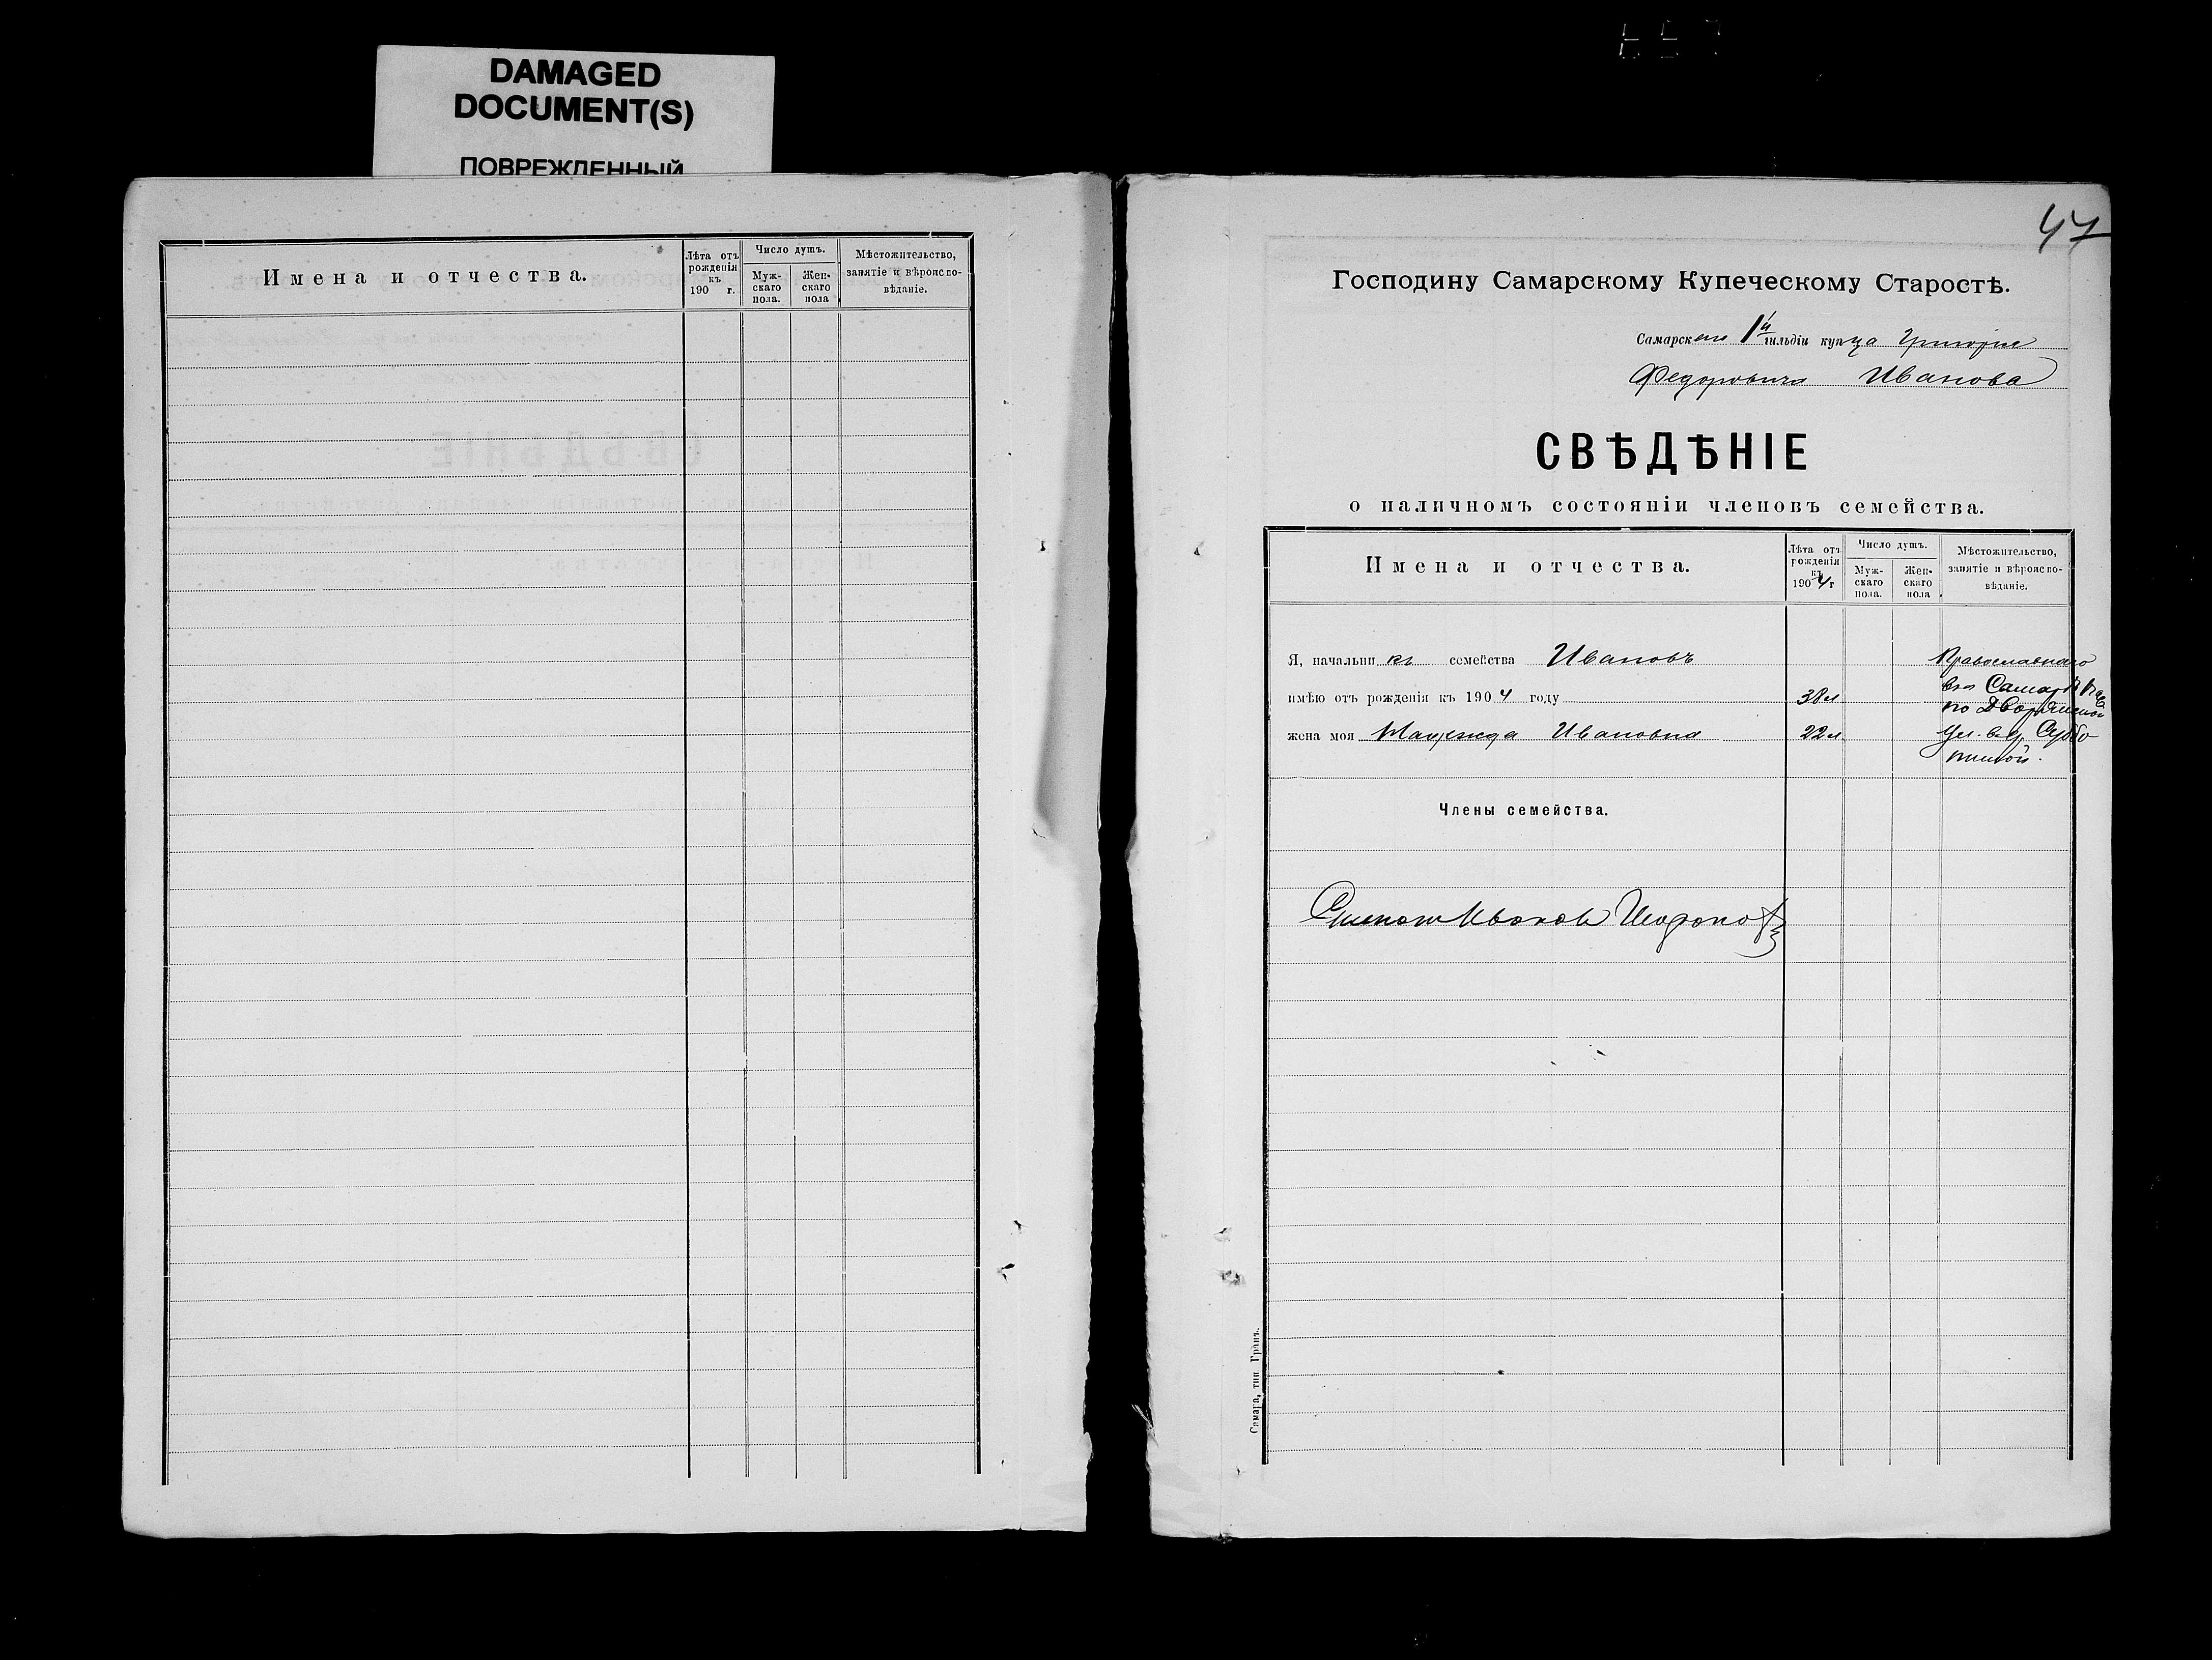 DAMAGED
DOCUMENT(S)
ПОВРЕЖДЕННЫЙ
Имена и отчества.
Лѣта отъ рожденія къ 190 г.
Число душъ.
Муж-
скаго
пола.
Жен-
скаго
пола
Мѣстожительство,
занятіе и вѣроиспо-
вѣданіе.
47
Господину Самарскому Купеческому Старостѣ.
Самарскаго 1й гильдіи купца Григорія
Федоровича Иванова
СВѢДѢНІЕ
о наличномъ состояніи членовъ семейства.
Имена и отчества.
Лѣта отъ рожденія къ 1904 г
Число душъ.
Муж-
скаго
пола.
Жен-
скаго
пола
Мѣстожительство,
занятіе и вѣроиспо-
вѣданіе.
Я, начальникъ семейства Ивановъ
Православнаго
имѣю отъ рожденія къ 1904 году 38 л
Самарѣ
по Дворянской
жена моя Надежда Ивановна 22 л
ул.
Члены семейства.
Самара, тип Гранъ.